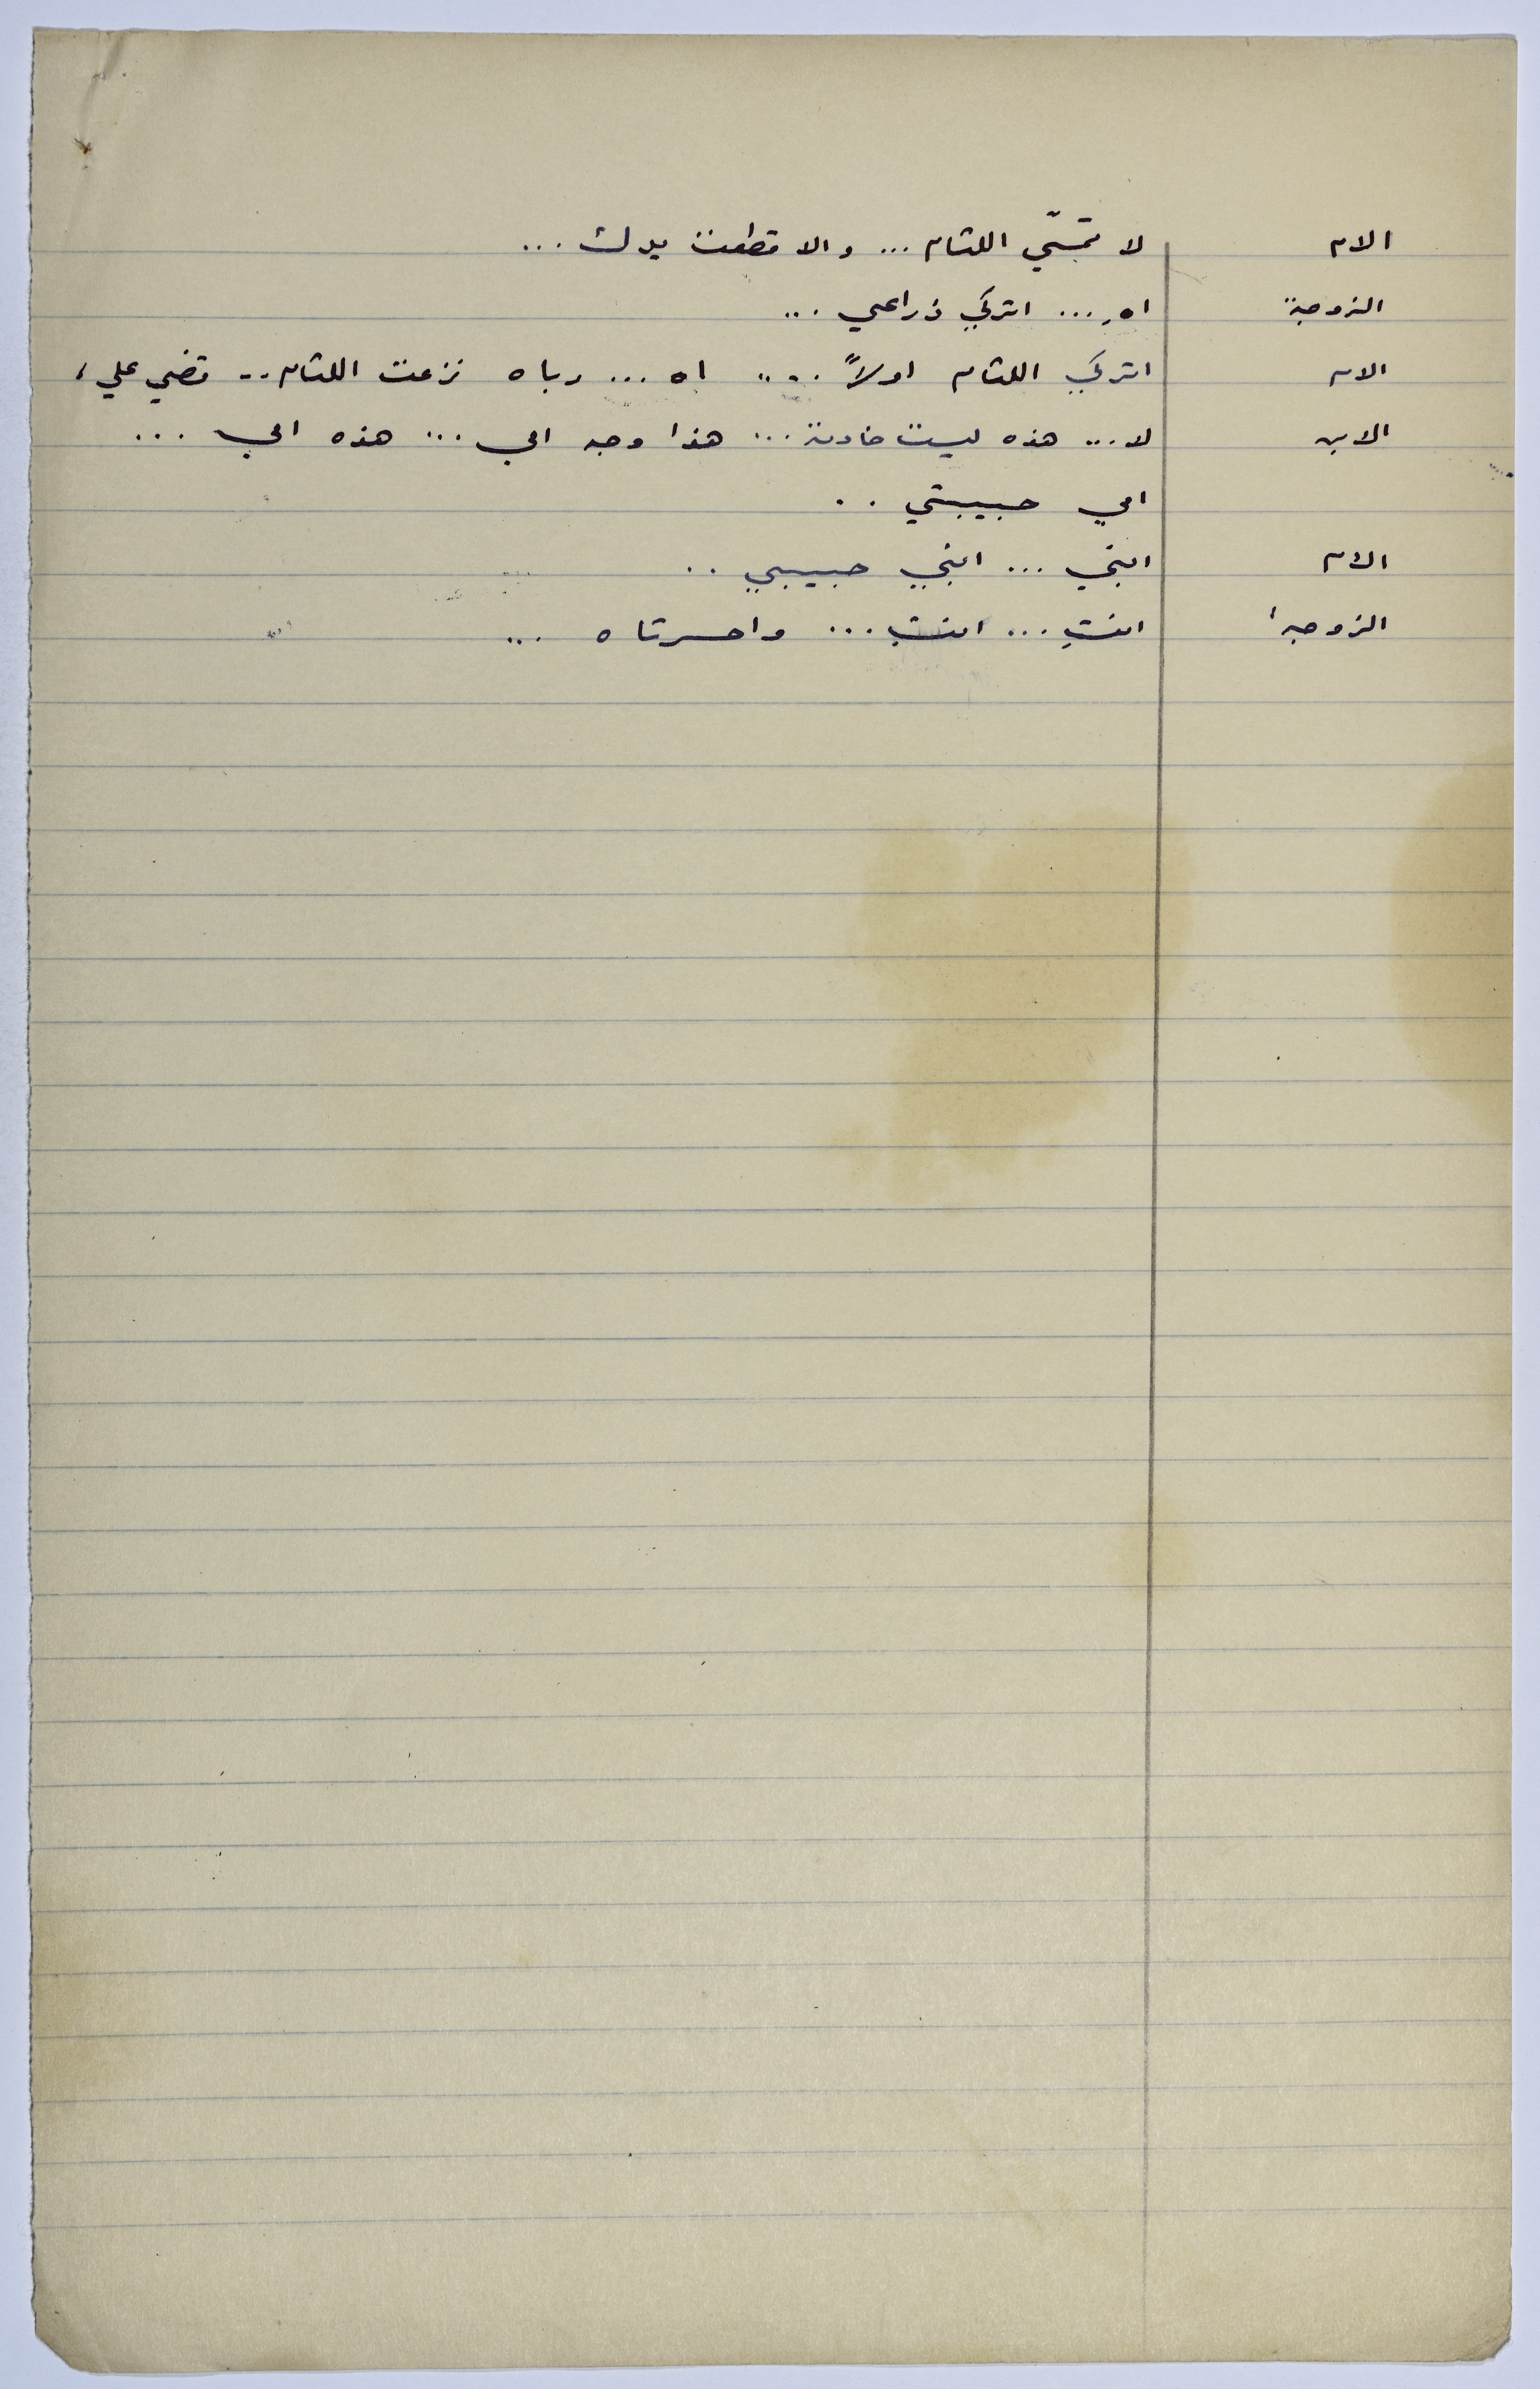 الام لا تمسّي اللثام ... والا قطعت يدك ...
الزوجة اه ... اتركي ذراعي ...
الام اتركي اللثام اولاً .... اه ... رباه نزعت اللثام .. قضي علي ،
الابن لا ... هذه ليست خادمة ... هذا وجه امي ... هذه امي ...
امي حبيبتي ..
الام ابني ... ابني حبيبي ..
الزوجة انتِ ... انتِ ... واحسرتاه ...